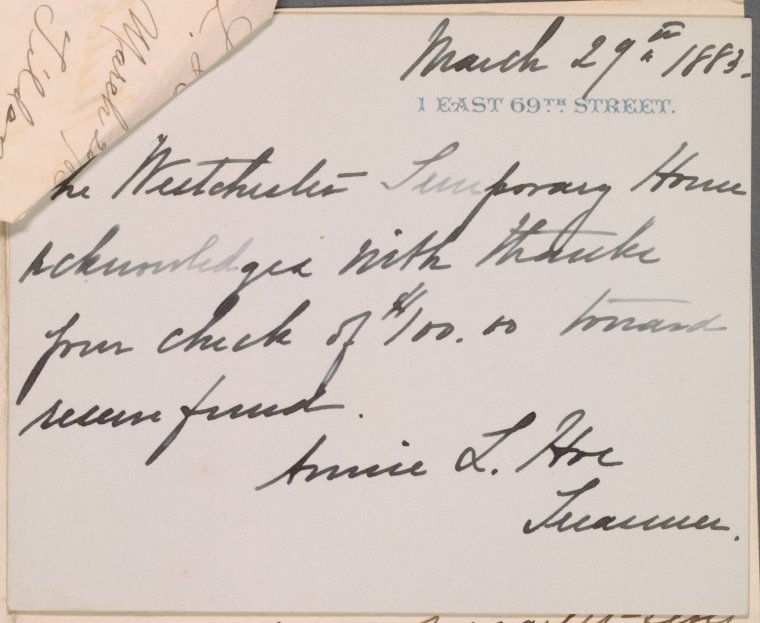 March 29th 1883.
1 EAST 69TH STREET.
he Westchester Temporary Home
acknowledges with thanks
your check of $100.00 toward
reserve fund.
Annie L. Hoe
Treasurer.
March
Tilden